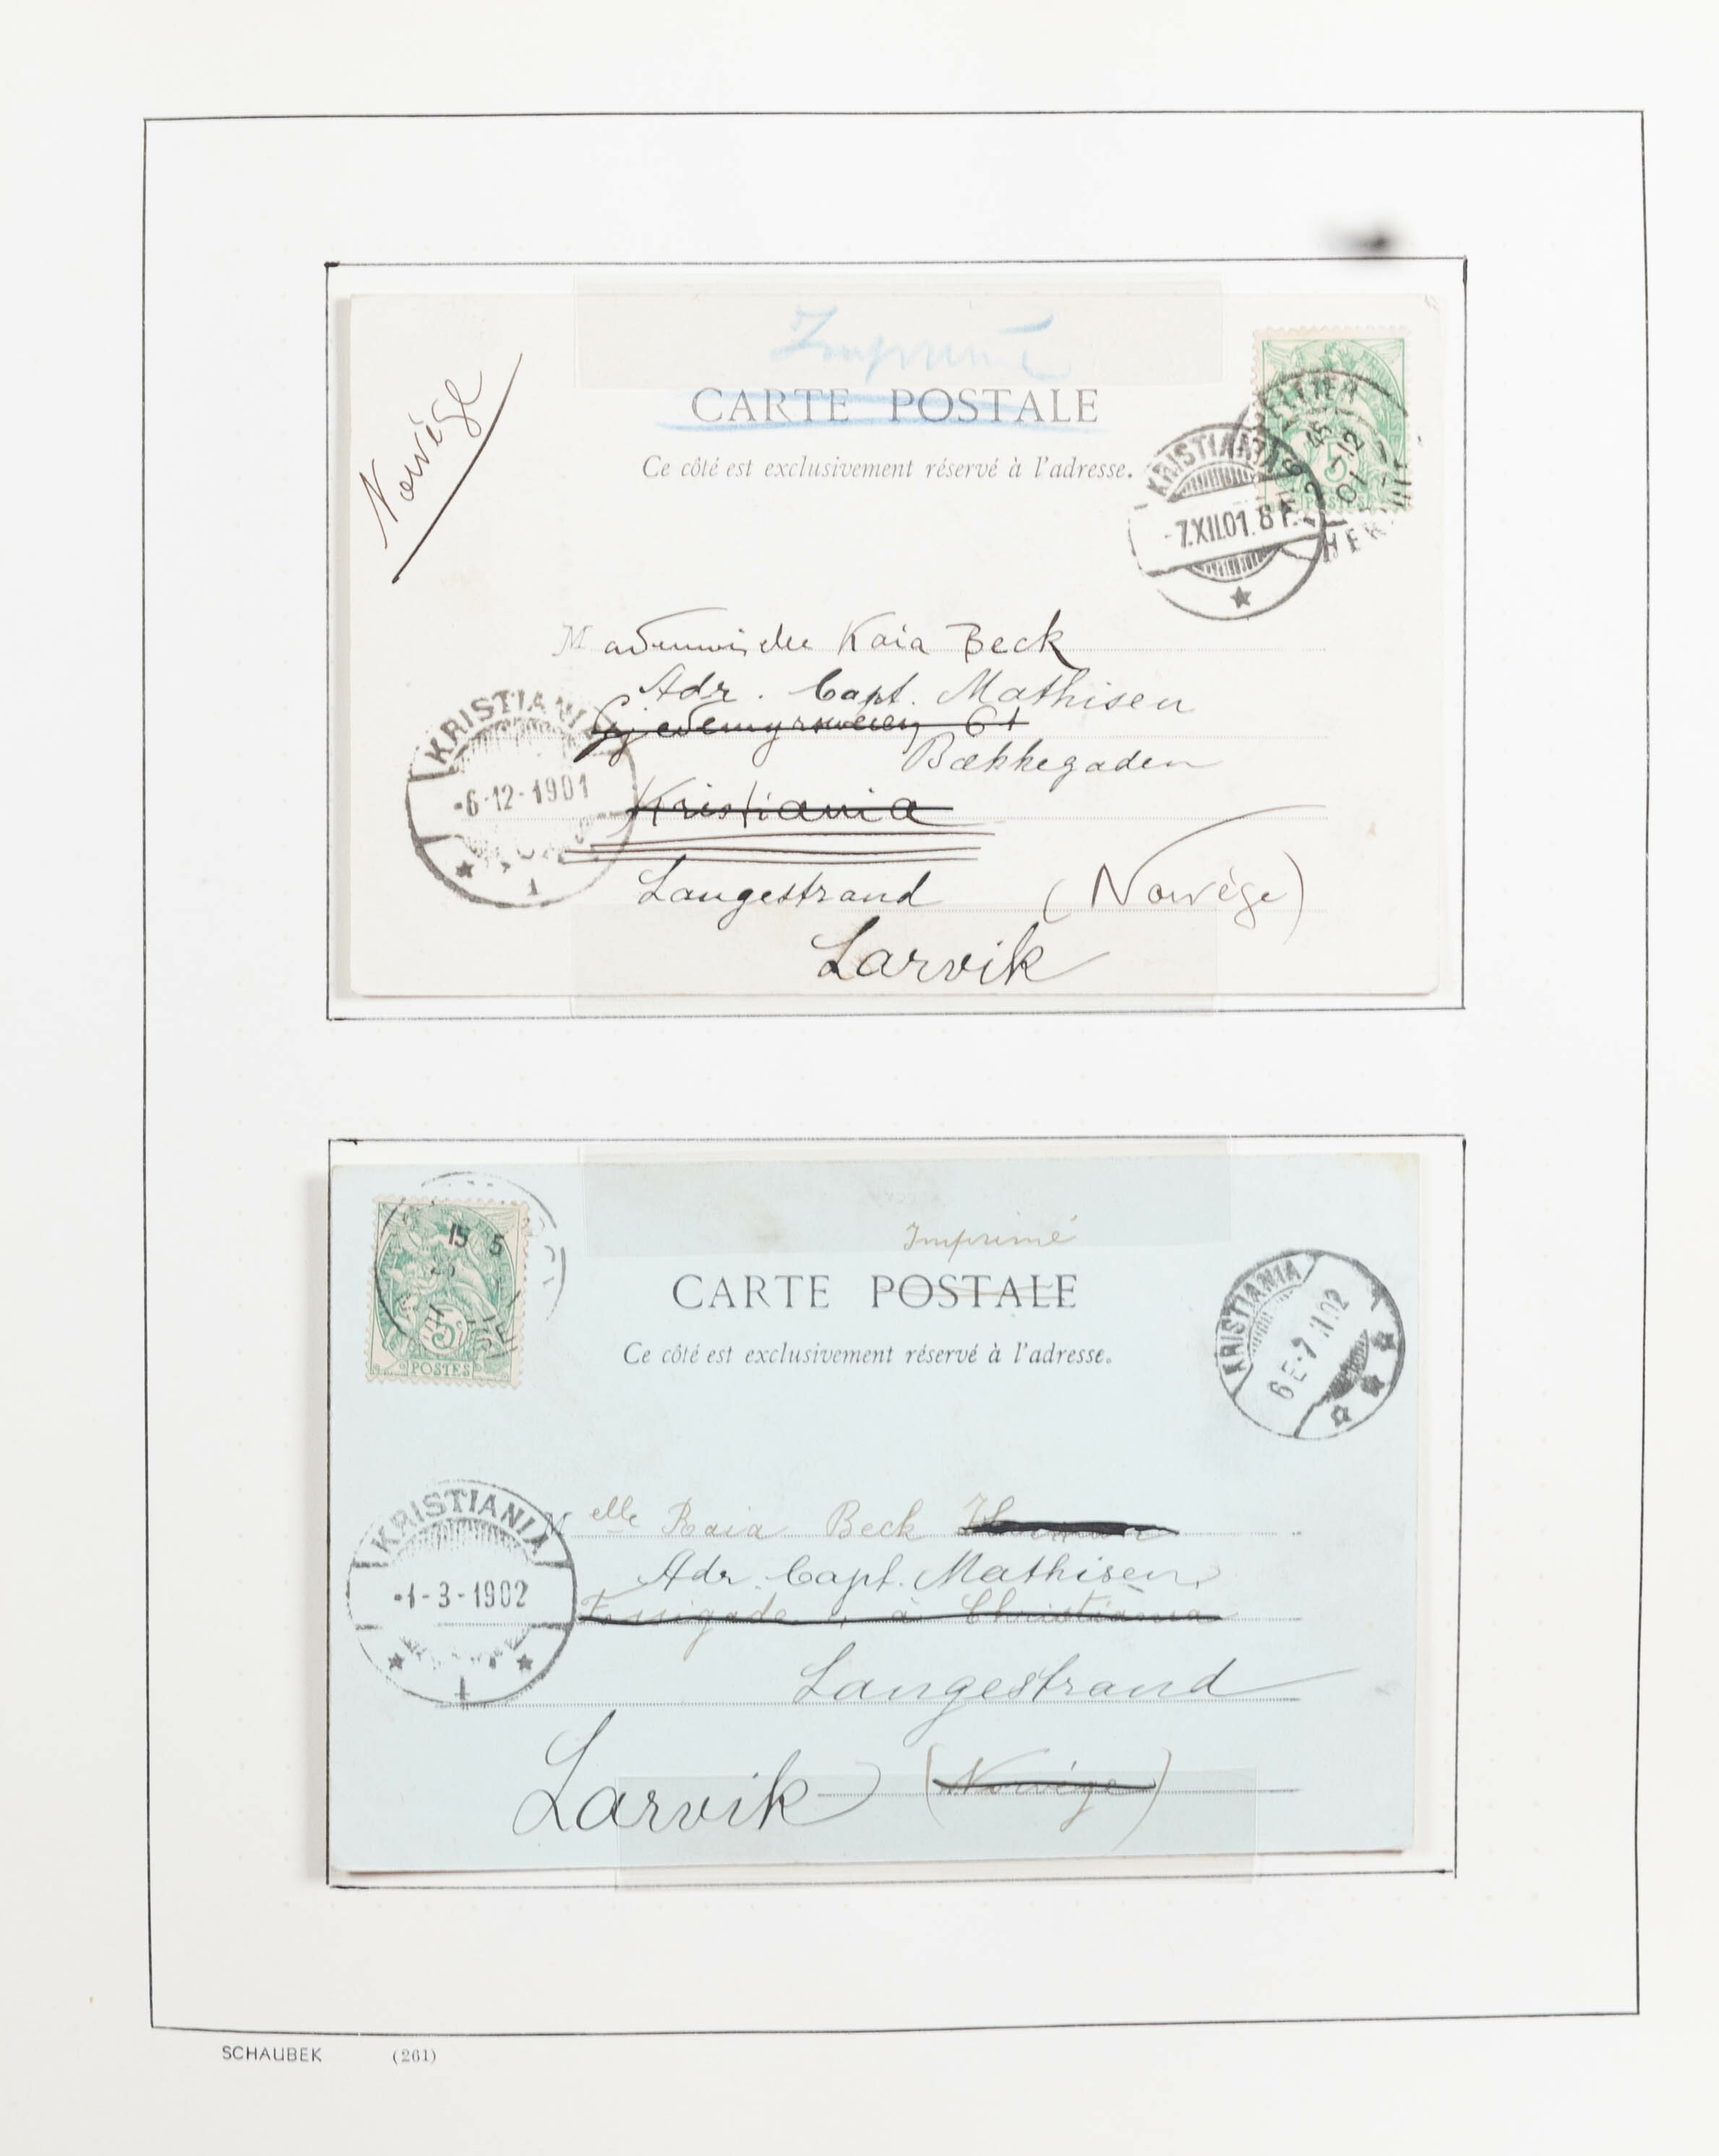 Imprimé
Norvège
CARTE POSTALE
Ce côté est exclusivement réservé à l'adresse.
5
POSTES
KRISTIANIA
-7.XII.01. 8 F.
Mademoiselle Kaia Beck
Adr. Capt. Mathisen
61
Bækkegaden
KRISTIANIA
-6-12-1901
1
Kristiania
Langestrand (Norvège)
Larvik
15 5
5c
POSTES
Imprimé
CARTE POSTALE
Ce côté est exclusivement réservé à l'adresse.
KRISTIANIA
6E-7.II.02
KRISTIANIA
-1-3-1902
1
Melle Kaia Beck
Adr. Capt. Mathisen
à Christiania
Langestrand
Larvik (Norvége)
SCHAUBEK (261)